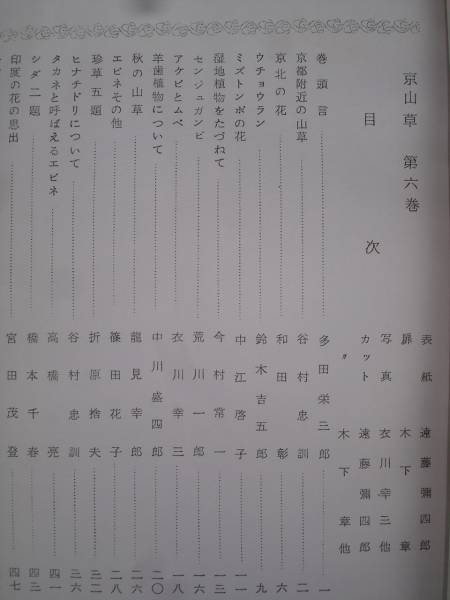 京山草　第六巻
目　次
表紙　遠藤彌四郎
扉　木下　章
写真　衣川幸三他
カット　遠藤彌四郎
〃　木下　章他
巻頭言……多田栄三郎……一
京都附近の山草……谷村忠訓……二
京北の花……和田　彰……六
ウチョウラン……鈴木吉五郎……九
ミズトンボの花……中江啓子……一一
湿地植物をたづねて……今村常一……一三
センジュガンピ……荒川一郎……一六
アケビとムベ……衣川幸三……一八
羊歯植物について……中川盛四郎……二〇
秋の山草……龍見幸郎……二六
エビネその他……篠田花子……二八
珍草五題……折原捨夫……三二
ヒナチドリについて……谷村忠訓……三六
タカネと呼ばえるエビネ……高橋　亮……四一
シダ二題……橋本千春……四三
印度の花の思出……宮田茂登……四七